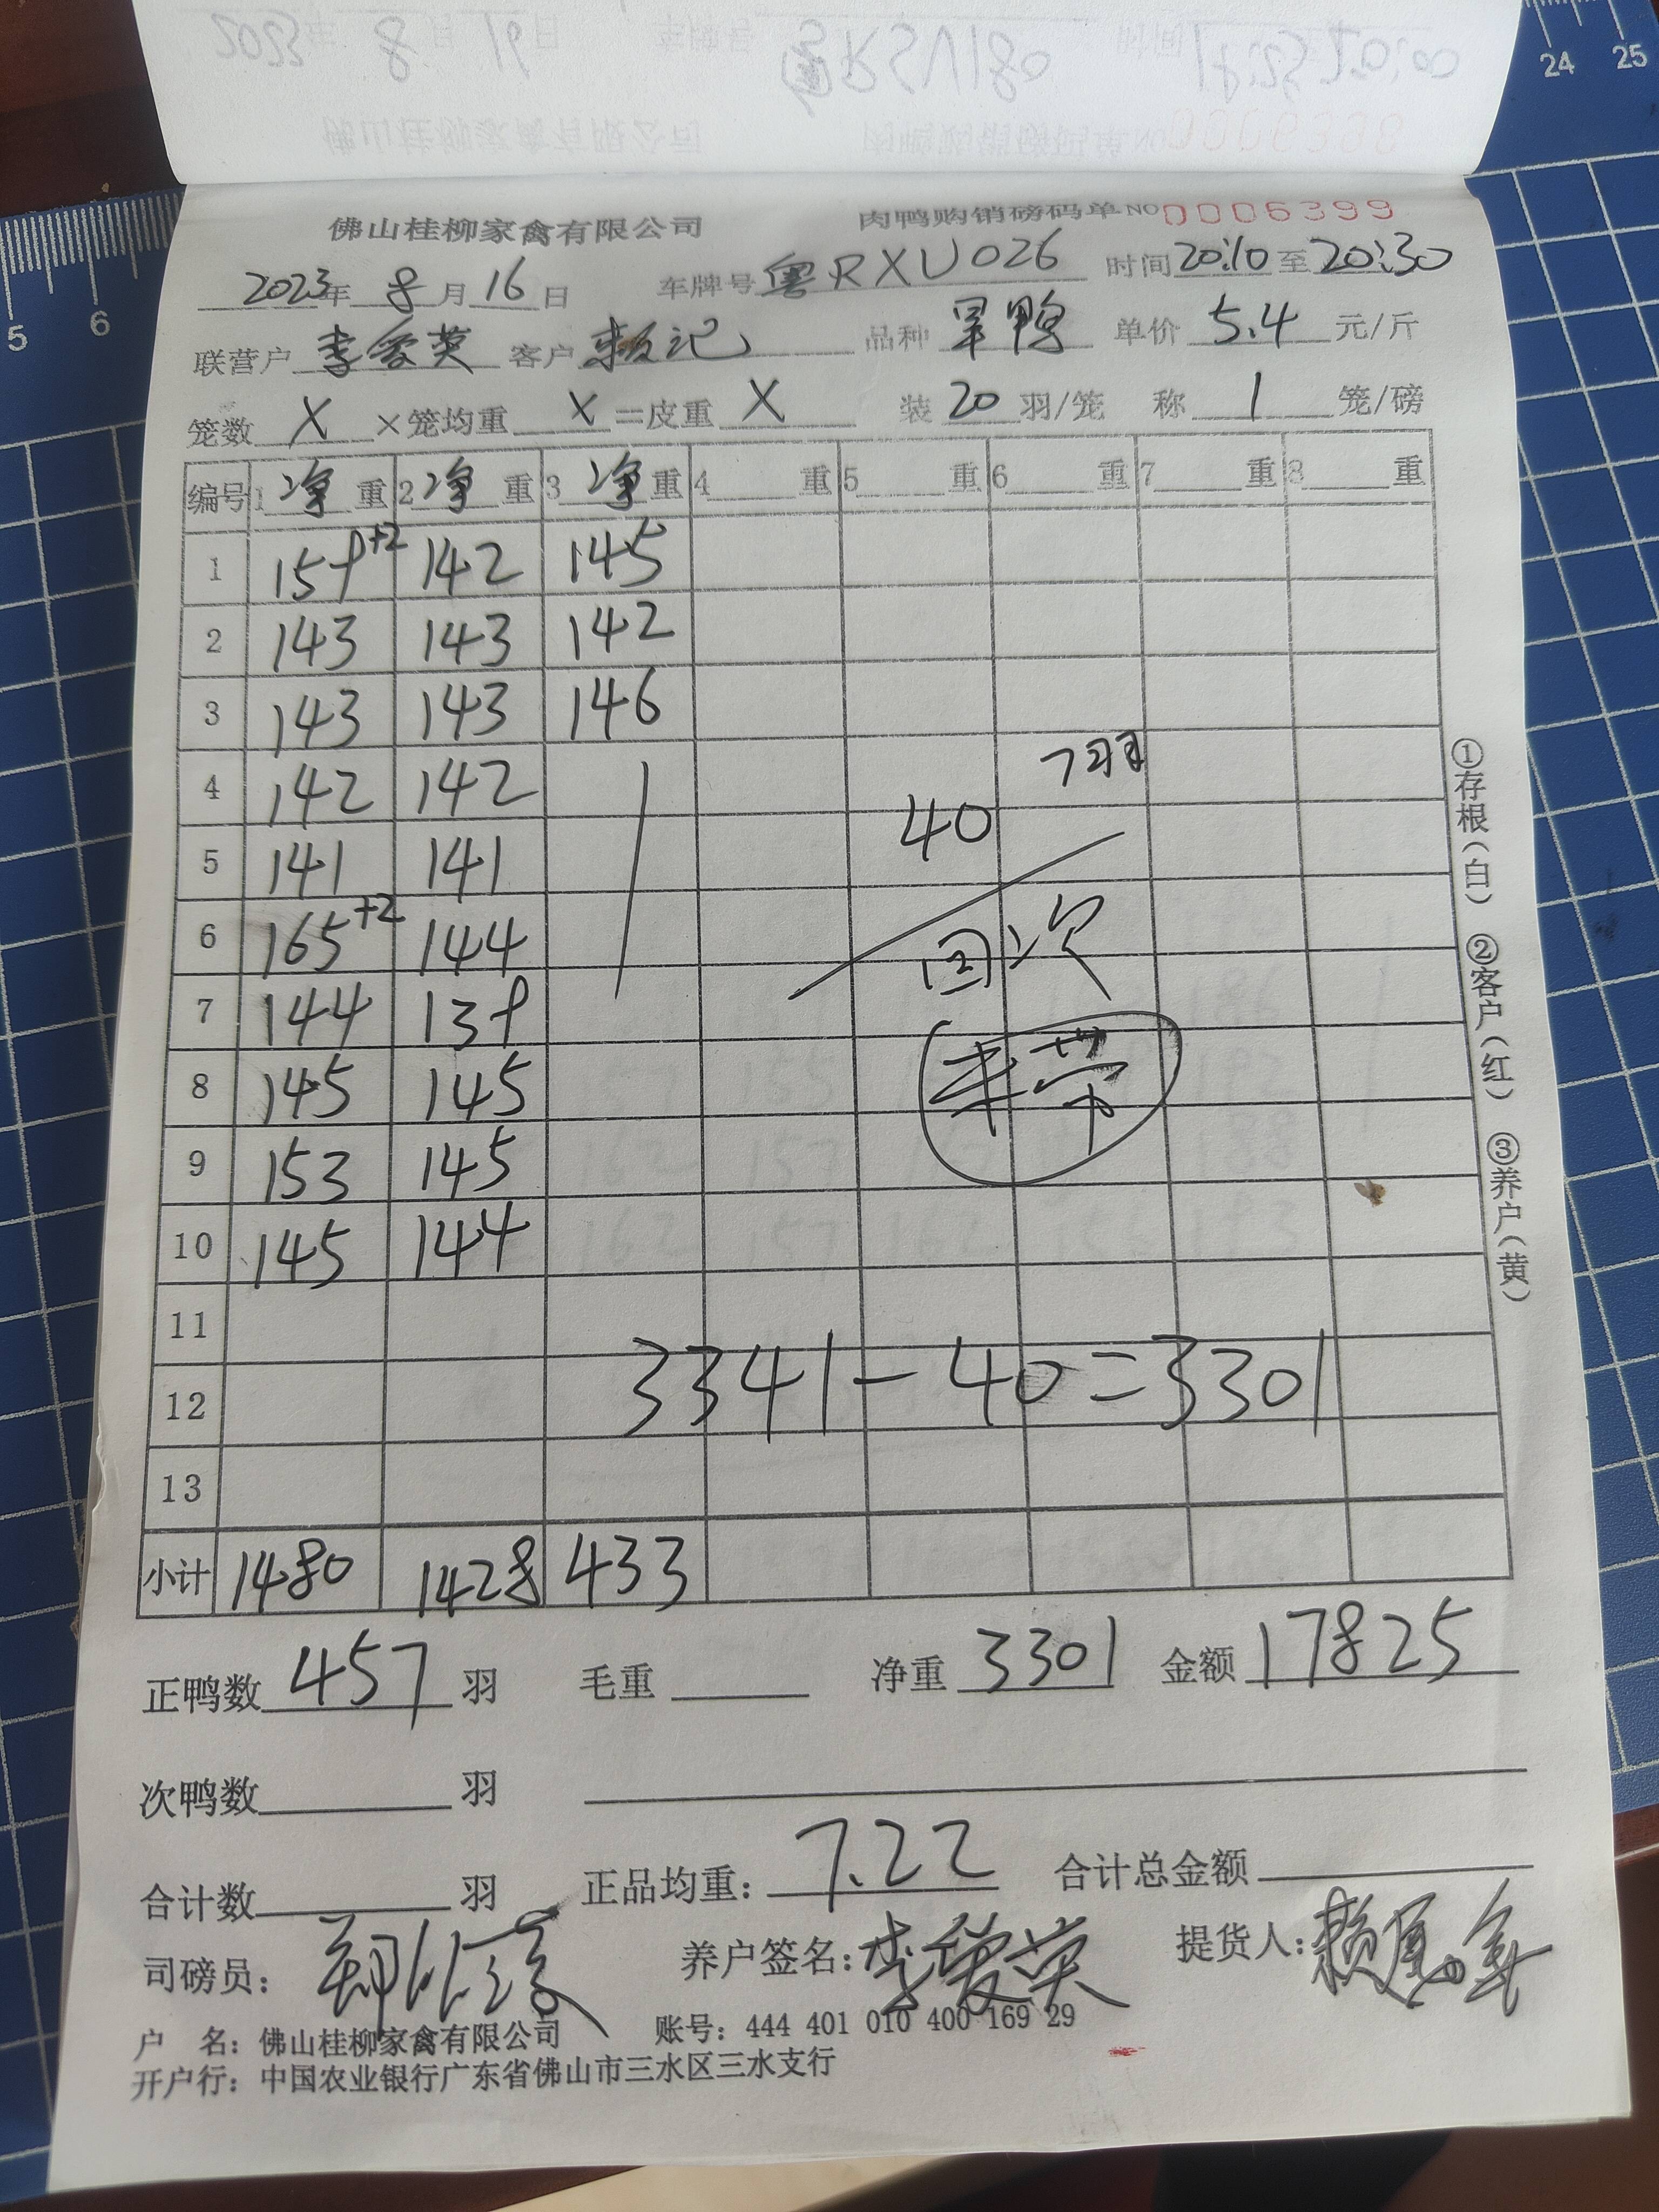 2023年 8月 19日 车牌号 粤RSV180 时间
佛山桂柳家禽有限公司 肉鸭购销磅码单NO 0006398
佛山桂柳家禽有限公司 肉鸭购销磅码单NO 0006399
2023年 8月 16日 车牌号 粤RXU026 时间20:10至20:30
联营户 李爱英 客户 赖记 品种 旱鸭 单价 5.4 元/斤
笼数 X ×笼均重 X =皮重 X 装 20 羽/笼 称 1 笼/磅
编号 1净重 2净重 3净重 4重 5重 6重 7重 8重
1 159+2 142 145
2 143 143 142
3 143 143 146
4 142 142
7羽
5 141 141
40
6 165+2 144
回次
7 144 139
8 145 145
9 153 145
10 145 144
11
12 3341-40=3301
13
小计 1480 1428 433
①存根(白) ②客户(红) ③养户(黄)
正鸭数 457 羽 毛重 净重 3301 金额 17825
次鸭数 羽
合计数 羽 正品均重: 7.22 合计总金额
司磅员: 养户签名:李爱英 提货人:
户 名: 佛山桂柳家禽有限公司 账号: 444 401 010 400 169 29
开户行: 中国农业银行广东省佛山市三水区三水支行
24 25
5 6